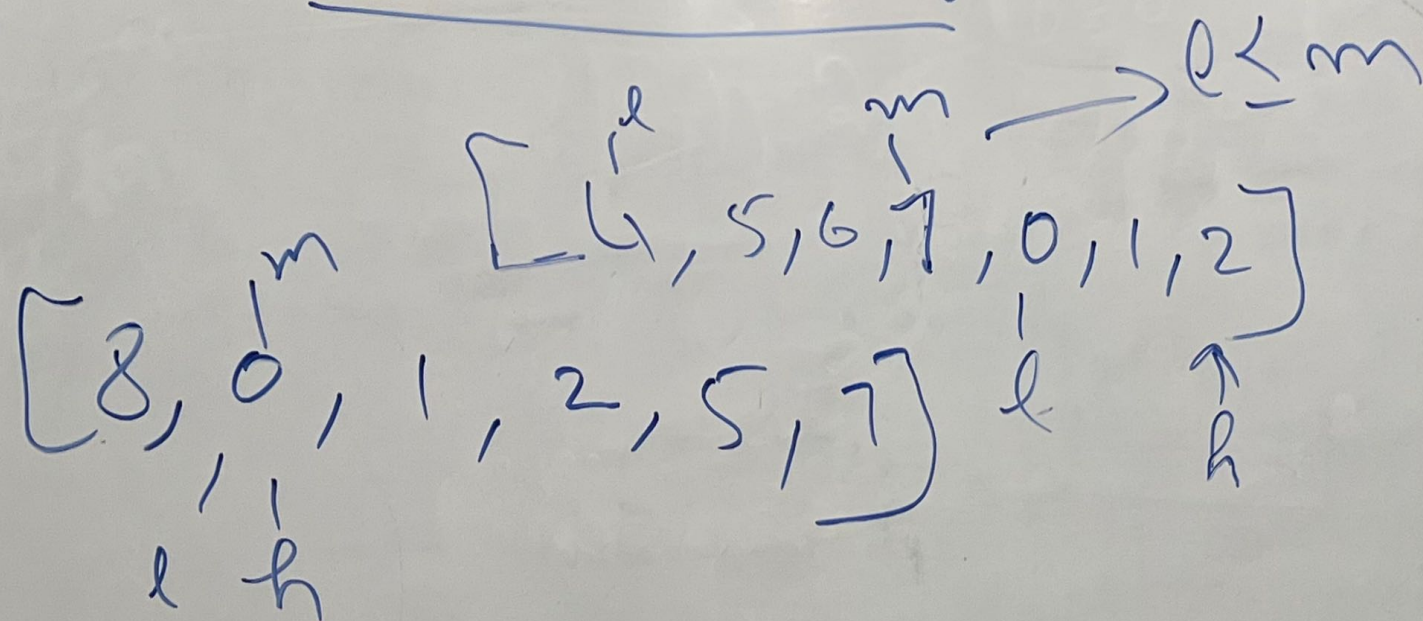 l ≤ m
l m
[4, 5, 6, 7, 0, 1, 2]
m
[8, 0, 1, 2, 5, 7]
l h
l h